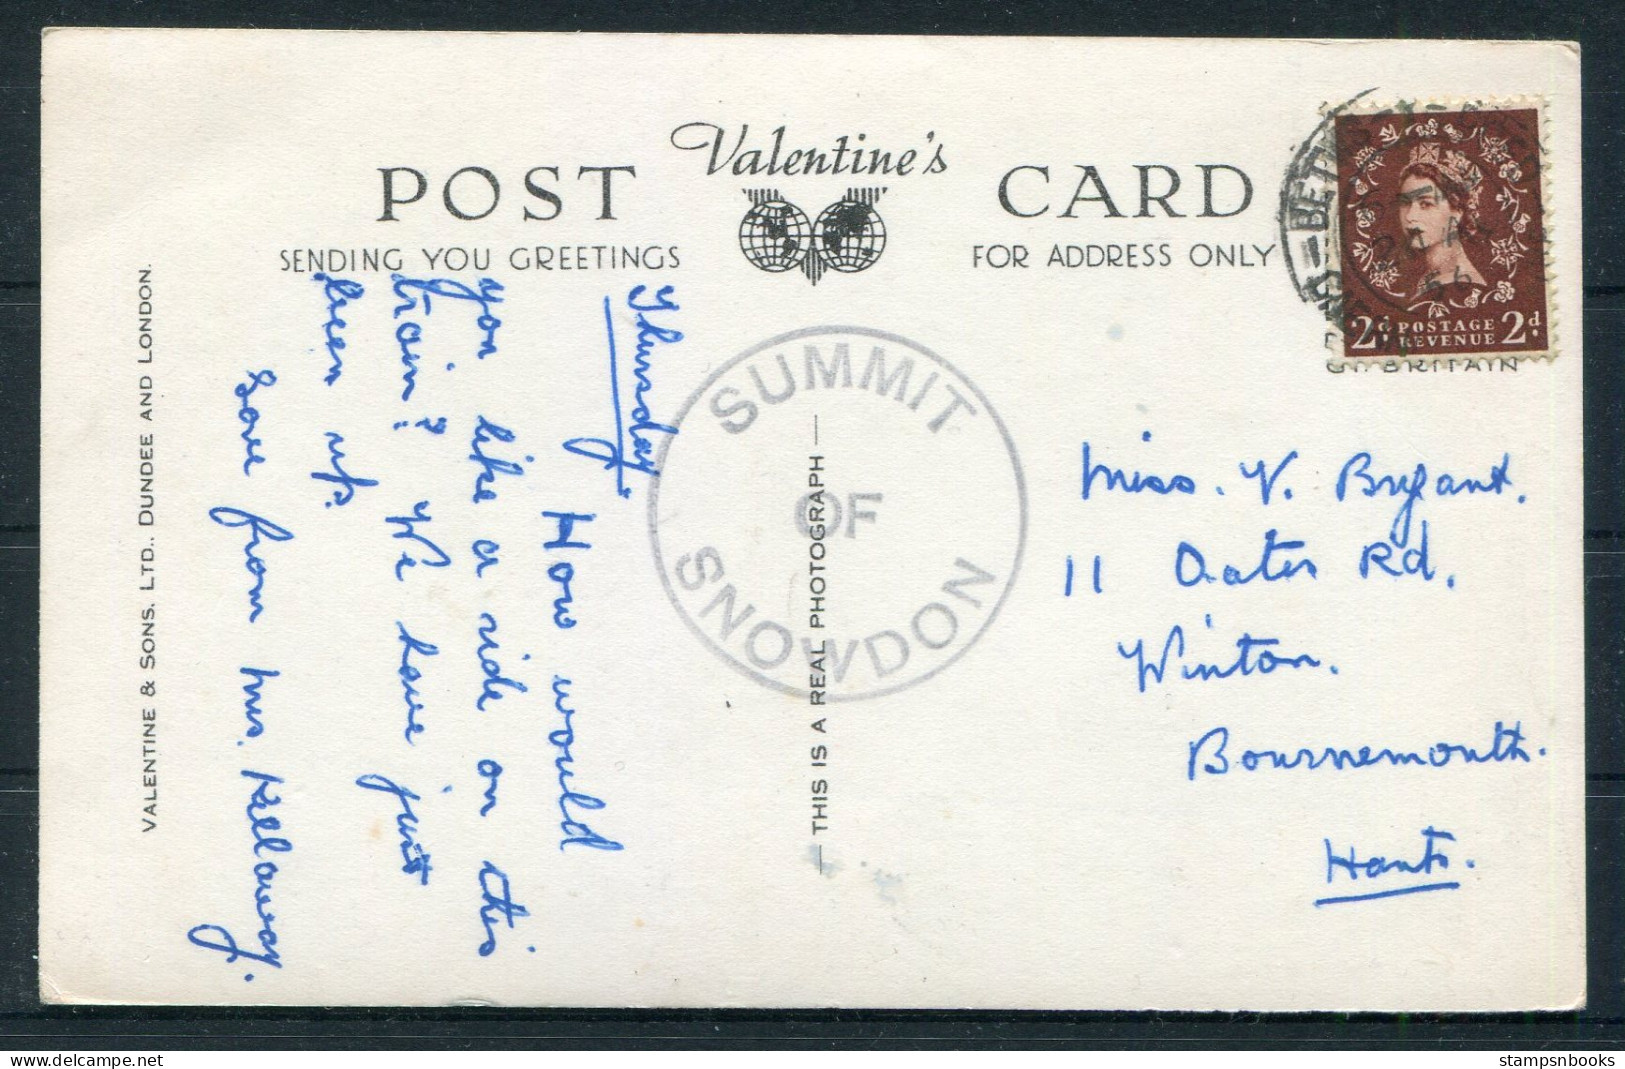 Valentine's
POST CARD
SENDING YOU GREETINGS
FOR ADDRESS ONLY
VALENTINE & SONS. LTD., DUNDEE AND LONDON.
Thursday.
How would
you like a ride on this
train? We have just
been up.
Love from Mrs. Kellaway.
SUMMIT
OF
SNOWDON
— THIS IS A REAL PHOTOGRAPH —
2d POSTAGE 2d
REVENUE
BRITAIN
Miss. V. Bryant.
11 Oates Rd.
Winton.
Bournemouth.
Hants.
stampsnbooks